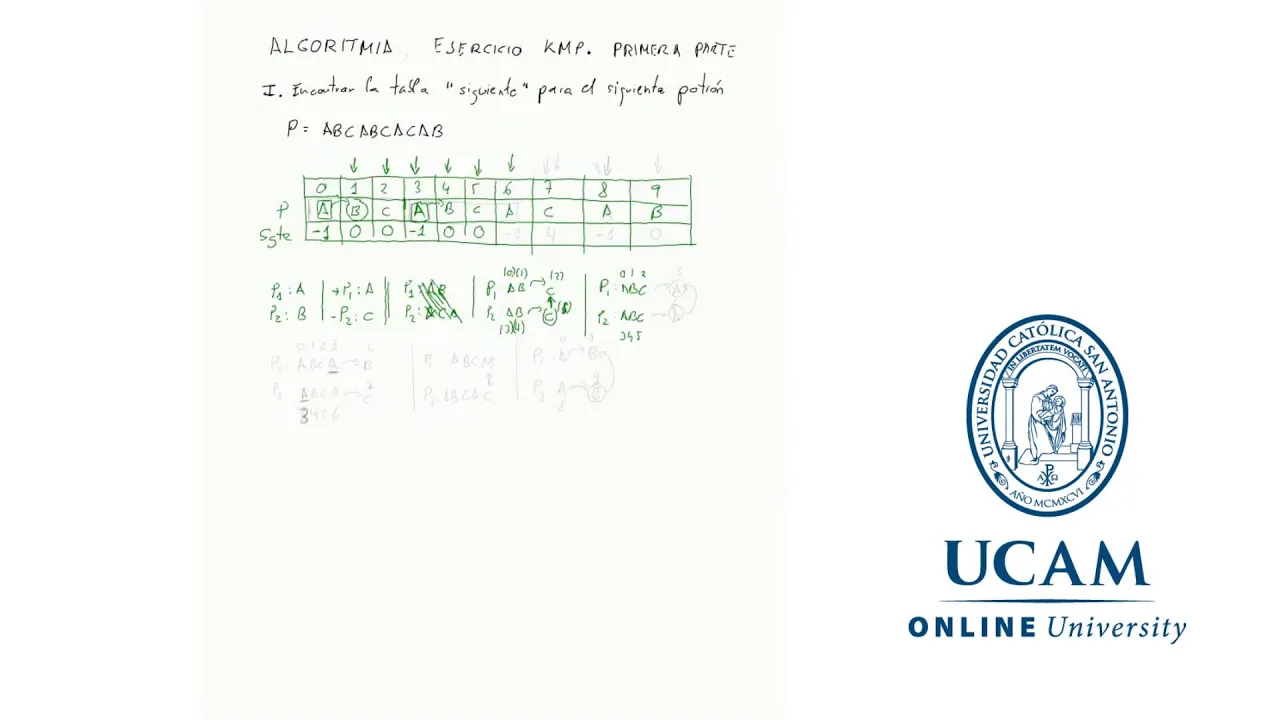 ALGORITMIA. EJERCICIO KMP. PRIMERA PARTE
I. Encontrar la tabla "siguiente" para el siguiente patrón
P= ABCABCACAB
0 1 2 3 4 5 6 7 8 9
P A B C A B C A C A B
Sgte -1 0 0 -1 0 0 -1 4 -1 0
(0)(1) (2) 0 1 2 3
P1: A →P1: A P1: AB P1: AB → C P1: ABC → A
P2: B -P2: C P2: ACA P2: AB → C (5) P2: ABC → A
(3)(4) 345
0 1 2 3 4
P1 ABCA → B P1 ABCAB P1 A → B
P2 ABCA → C P2 ABCAC P2 A →
3 4 5 6 8
UNIVERSIDAD CATÓLICA SAN ANTONIO
IN LIBERTATEM VOCATI
AÑO MCMXCVI
UCAM
ONLINE University